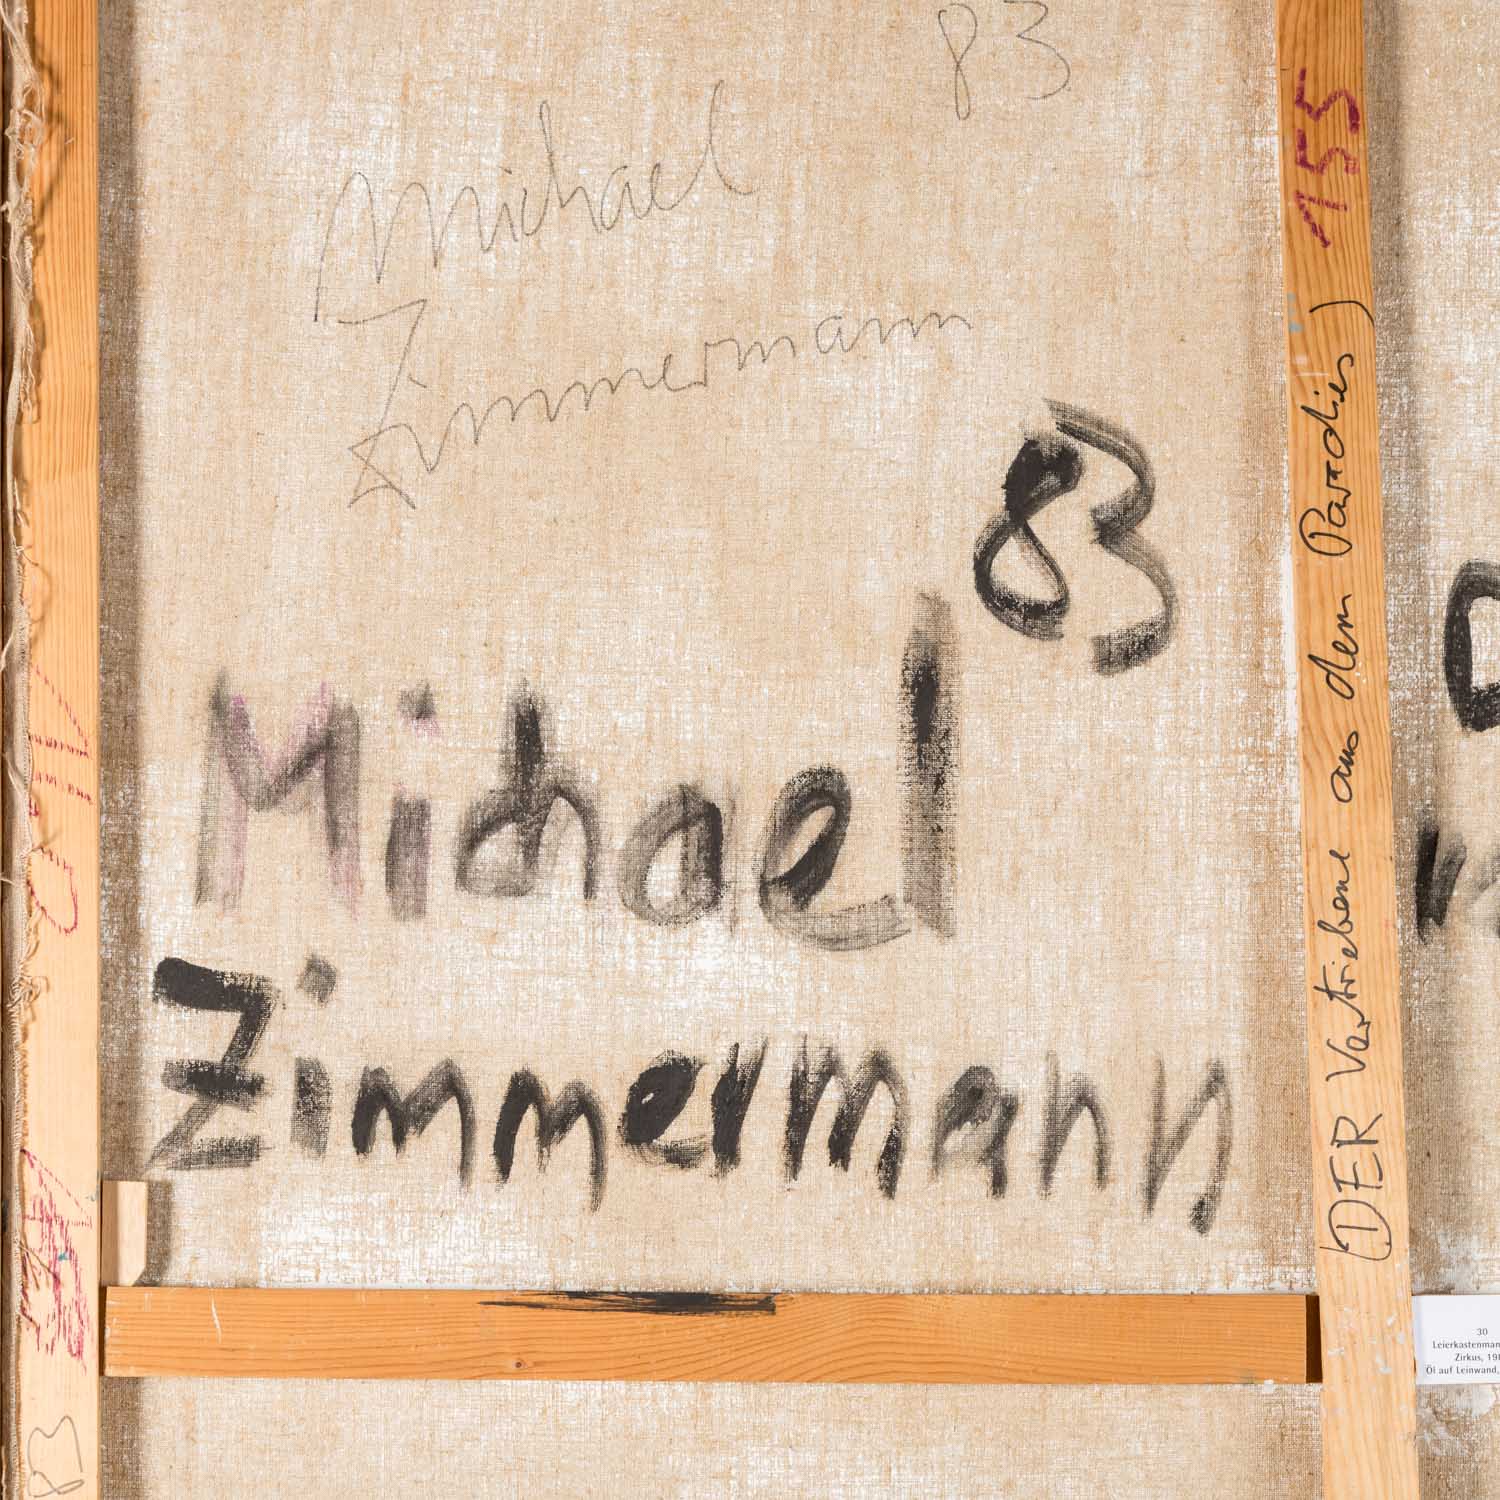 83
Michael
Zimmermann
83
Michael
Zimmermann
155
(DER Vertriebene aus dem Paradies)
30
Leierkastenman
Zirkus, 19
Öl auf Leinwand,
83